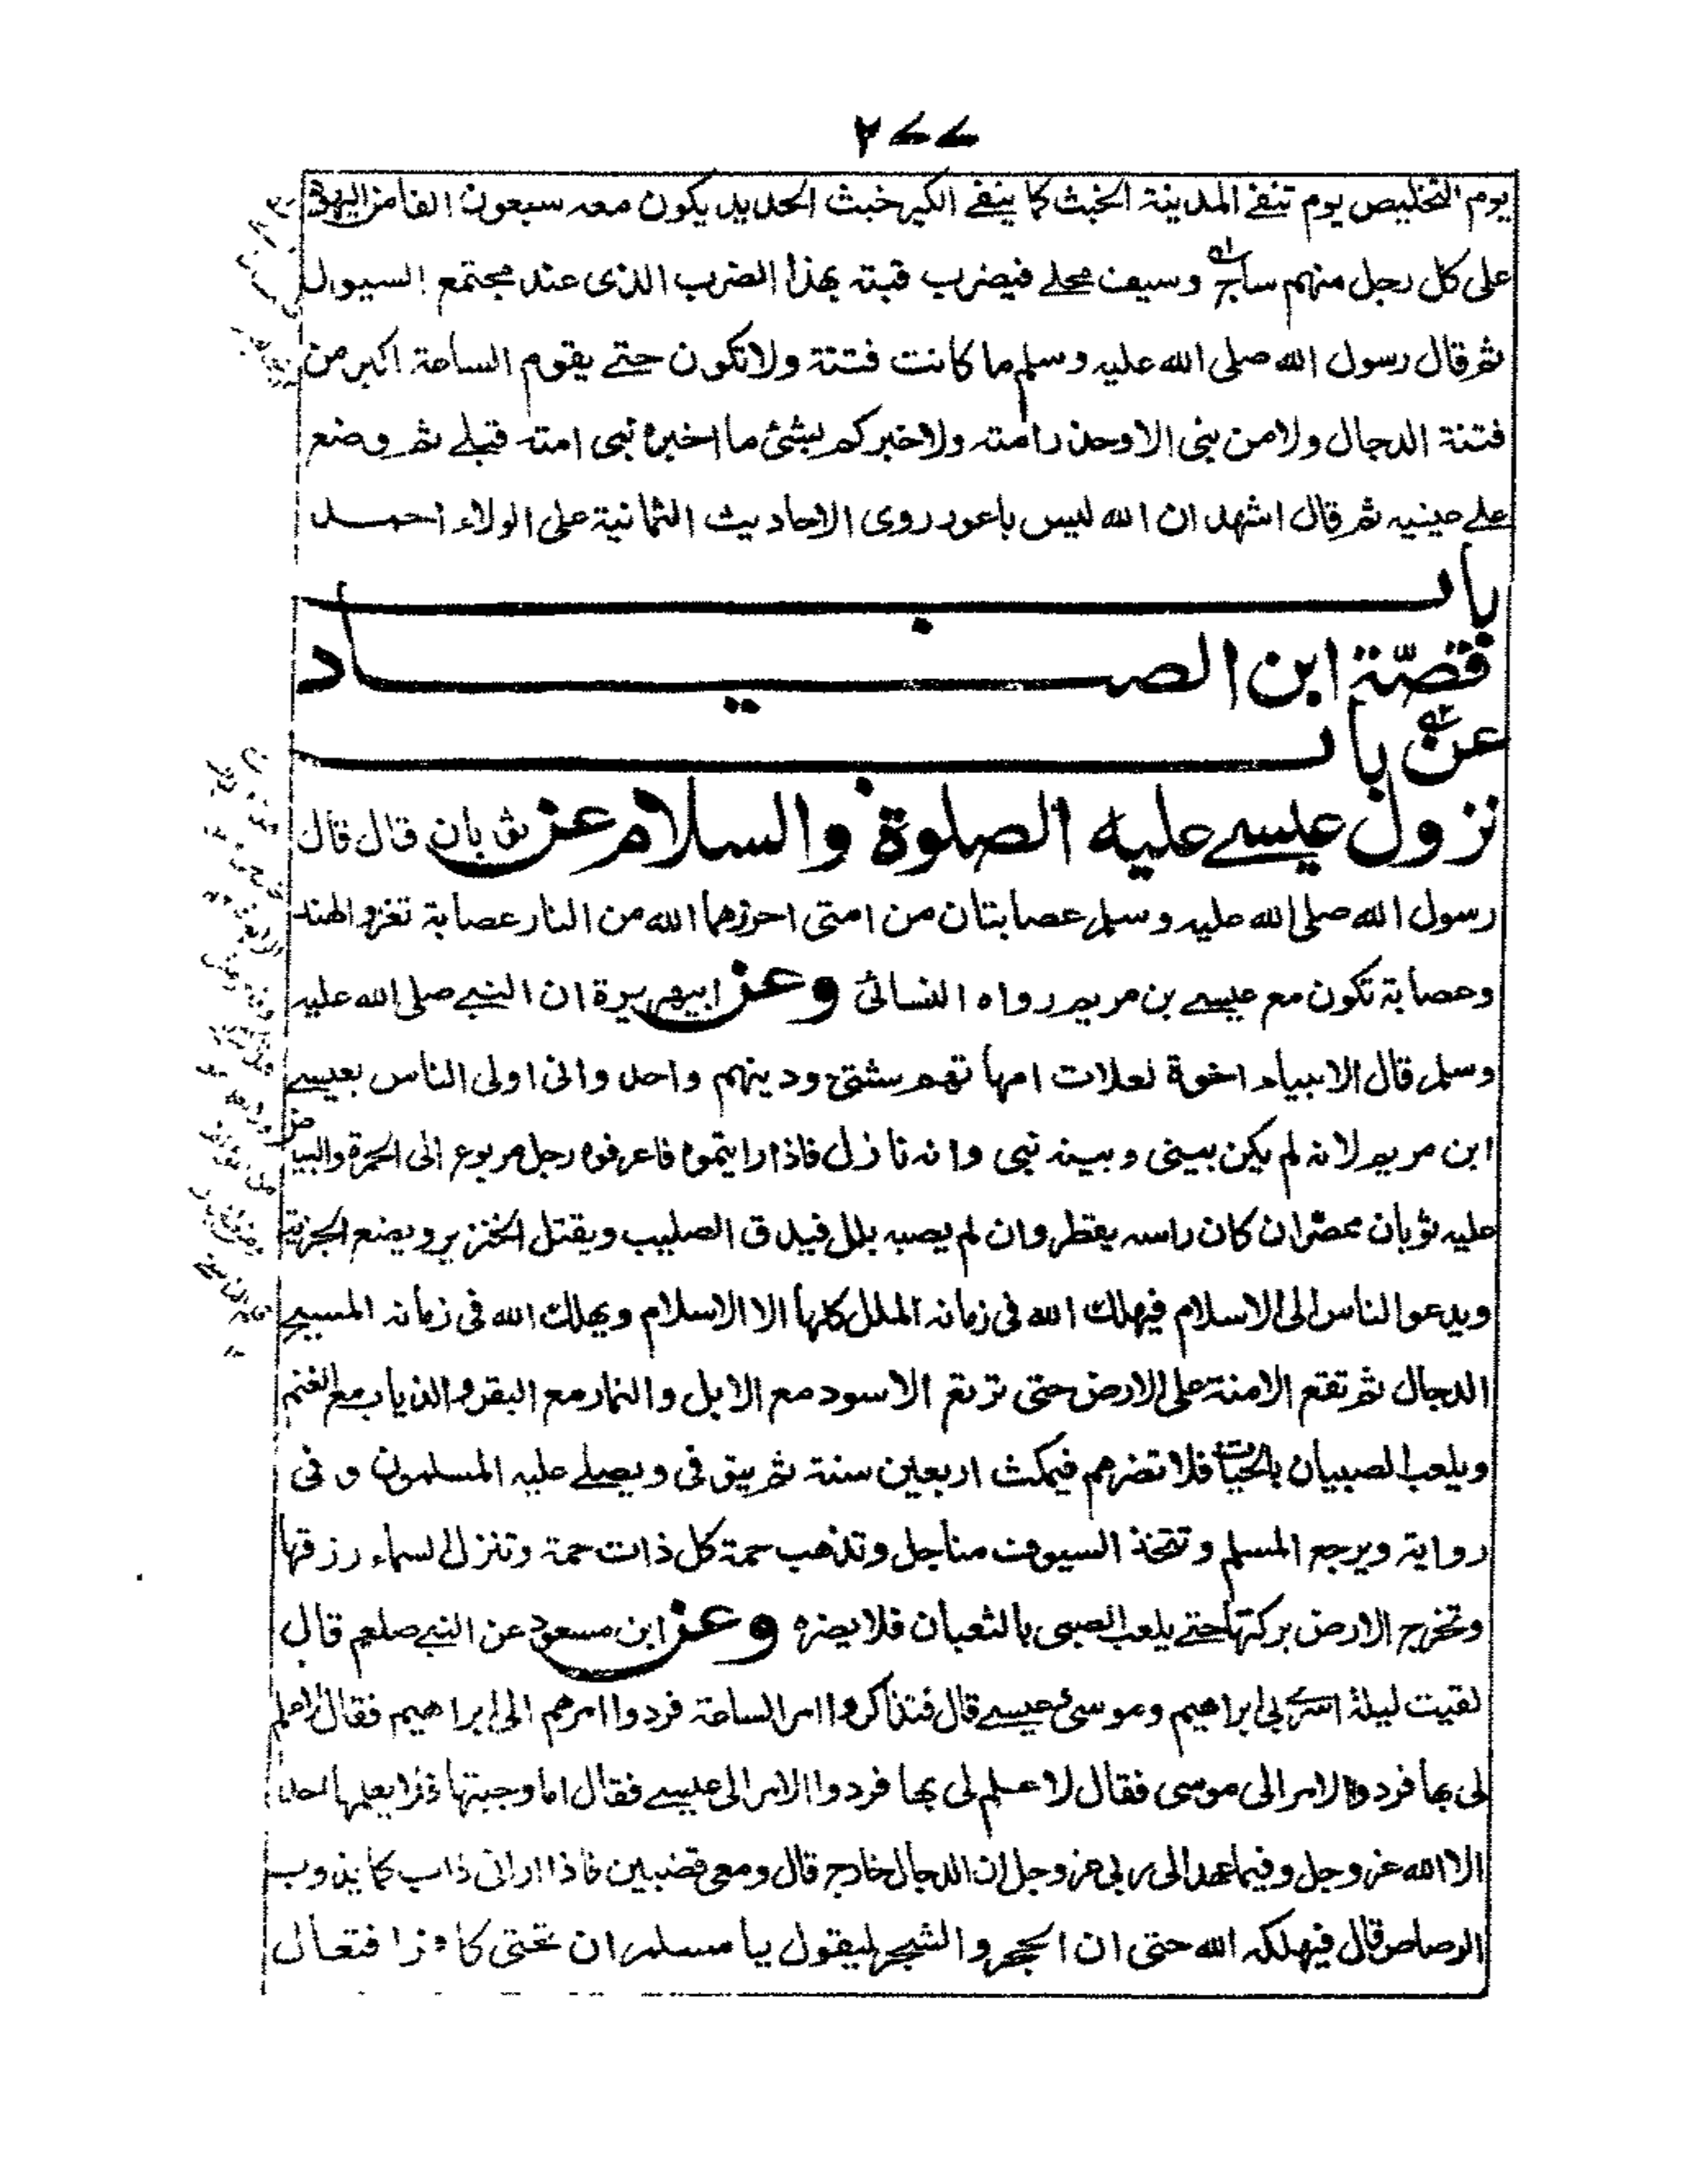 ٢٧٧
يوم التخليص يوم تنفے المدينة الخبث كما ينفے الكير خبث الحديد يكون معه سبعون الفا من اليهود
على كل رجل منهم ساج وسيف محلے فيضرب قبته بهذا الضرب الذى عند مجتمع السيول
ثم قال رسول الله صلى الله عليه وسلم ما كانت فتنة ولا تكون حتے يقوم الساعة اكبر من
فتنة الدجال ولا من نبى الا وحذر امته ولاخبركم بشئ ما اخبره نبى امته قبلے ثم وضع
علے عينيه ثم قال اشهد ان الله ليس باعور روى الاحاديث الثمانية على الولاء احمد
باب
قصّة ابن الصياد
عن باب
نزول عيسے عليه الصلوة والسلام عن ثوبان قال قال
رسول الله صلى الله عليه وسلم عصابتان من امتى احرزهما الله من النار عصابة تغزو الهند
وعصابة تكون مع عيسے بن مريم رواه النسائى وعن ابى هريرة ان النبے صلى الله عليه
وسلم قال الانبياء اخوة لعلات امهاتهم شتى ودينهم واحد وانى اولى الناس بعيسے
ابن مريم لانه لم يكن بينى وبينه نبى وانه نازل فاذا رايتموه فاعرفوه رجل مربوع الى الحمرة والبياض
عليه ثوبان ممصران كان راسه يقطر وان لم يصبه بلل فيدق الصليب ويقتل الخنزير ويضع الجزية
ويدعو الناس الى الاسلام فيهلك الله فى زمانه الملل كلها الا الاسلام ويهلك الله فى زمانه المسيح
الدجال ثم تقع الامنة على الارض حتى ترتع الاسود مع الابل والنمار مع البقر والذياب مع الغنم
ويلعب الصبيان بالحيات فلا تضرهم فيمكث اربعين سنة ثم يتوفى ويصلے عليه المسلمون و فى
رواية ويرجع المسلم وتتخذ السيوف مناجل وتذهب حمة كل ذات حمة وتنزل السماء رزقها
وتخرج الارض بركتها حتے يلعب الصبى بالثعبان فلا يضره وعن ابن مسعود عن النبے صلعم قال
لقيت ليلة اسرے بى ابراهيم وموسى عيسے قال فتذاكروا امر الساعة فردوا امرهم الى ابراهيم فقال لا علم
لى بها فردوا الامر الى موسى فقال لا علم لى بها فردوا الامر الى عيسے فقال اما وجبتها فلا يعلمها احد
الا الله عز وجل وفيما عهد الى ربى عز وجل ان الدجال خارج قال ومعى قضيبين فاذا ارانى ذاب كما يذوب
الرصاص قال فيهلكه الله حتى ان الحجر والشجر ليقول يا مسلم ان تحتى كافرا فتعال